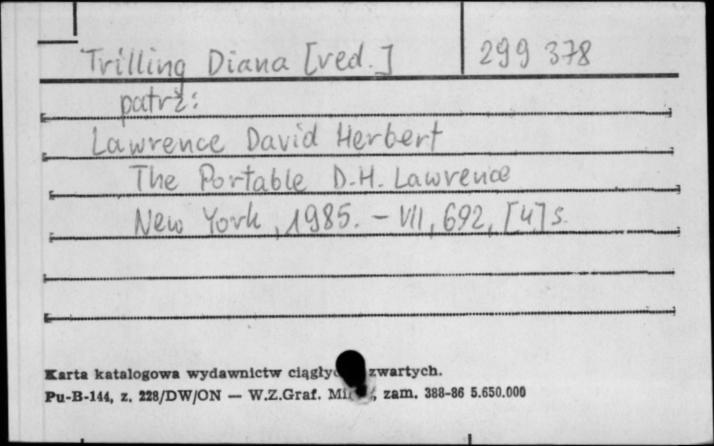 Trilling Diana [red.] 299 378
patrz:
Lawrence David Herbert
The Portable D.H. Lawrence
New York, 1985. - VII, 692, [4] s.
Karta katalogowa wydawnictw zwartych.
Pu-B-144, z. 228/DW/ON — W.Z.Graf. zam. 388-86 5.650.000